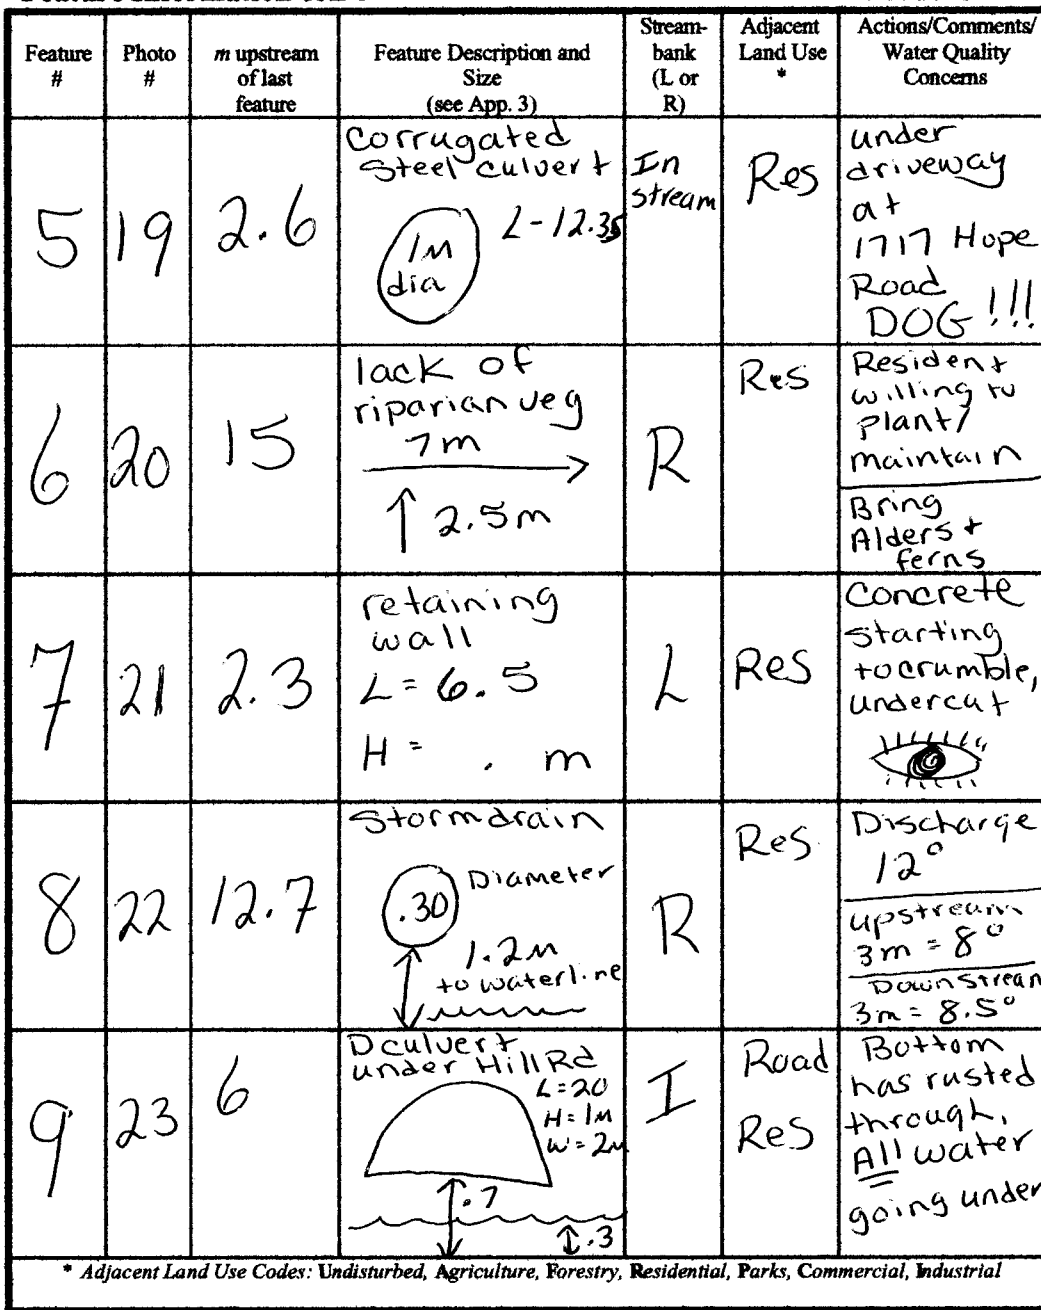 Feature # Photo # m upstream of last feature Feature Description and Size (see App. 3) Stream-bank (L or R) Adjacent Land Use * Actions/Comments/ Water Quality Concerns
5
19
2.6
Corrugated
Steel culvert
1M
dia
L-12.35
In
stream
Res
under
driveway
at
1717 Hope
Road
DOG!!!
6
20
15
lack of
riparian veg
7m
2.5m
R
Res
Resident
willing to
plant/
maintain
Bring
Alders +
ferns
7
21
2.3
retaining
wall
L = 6.5
H = . m
L
Res
Concrete
starting
to crumble,
undercut
8
22
12.7
Stormdrain
.30
Diameter
1.2M
to waterline
R
Res
Discharge
12°
upstream
3m = 8°
Downstream
3m = 8.5°
9
23
6
D culvert
under Hill Rd
L=20
H=1M
W=2M
.7
.3
I
Road
Res
Bottom
has rusted
through,
All water
going under
* Adjacent Land Use Codes: Undisturbed, Agriculture, Forestry, Residential, Parks, Commercial, Industrial